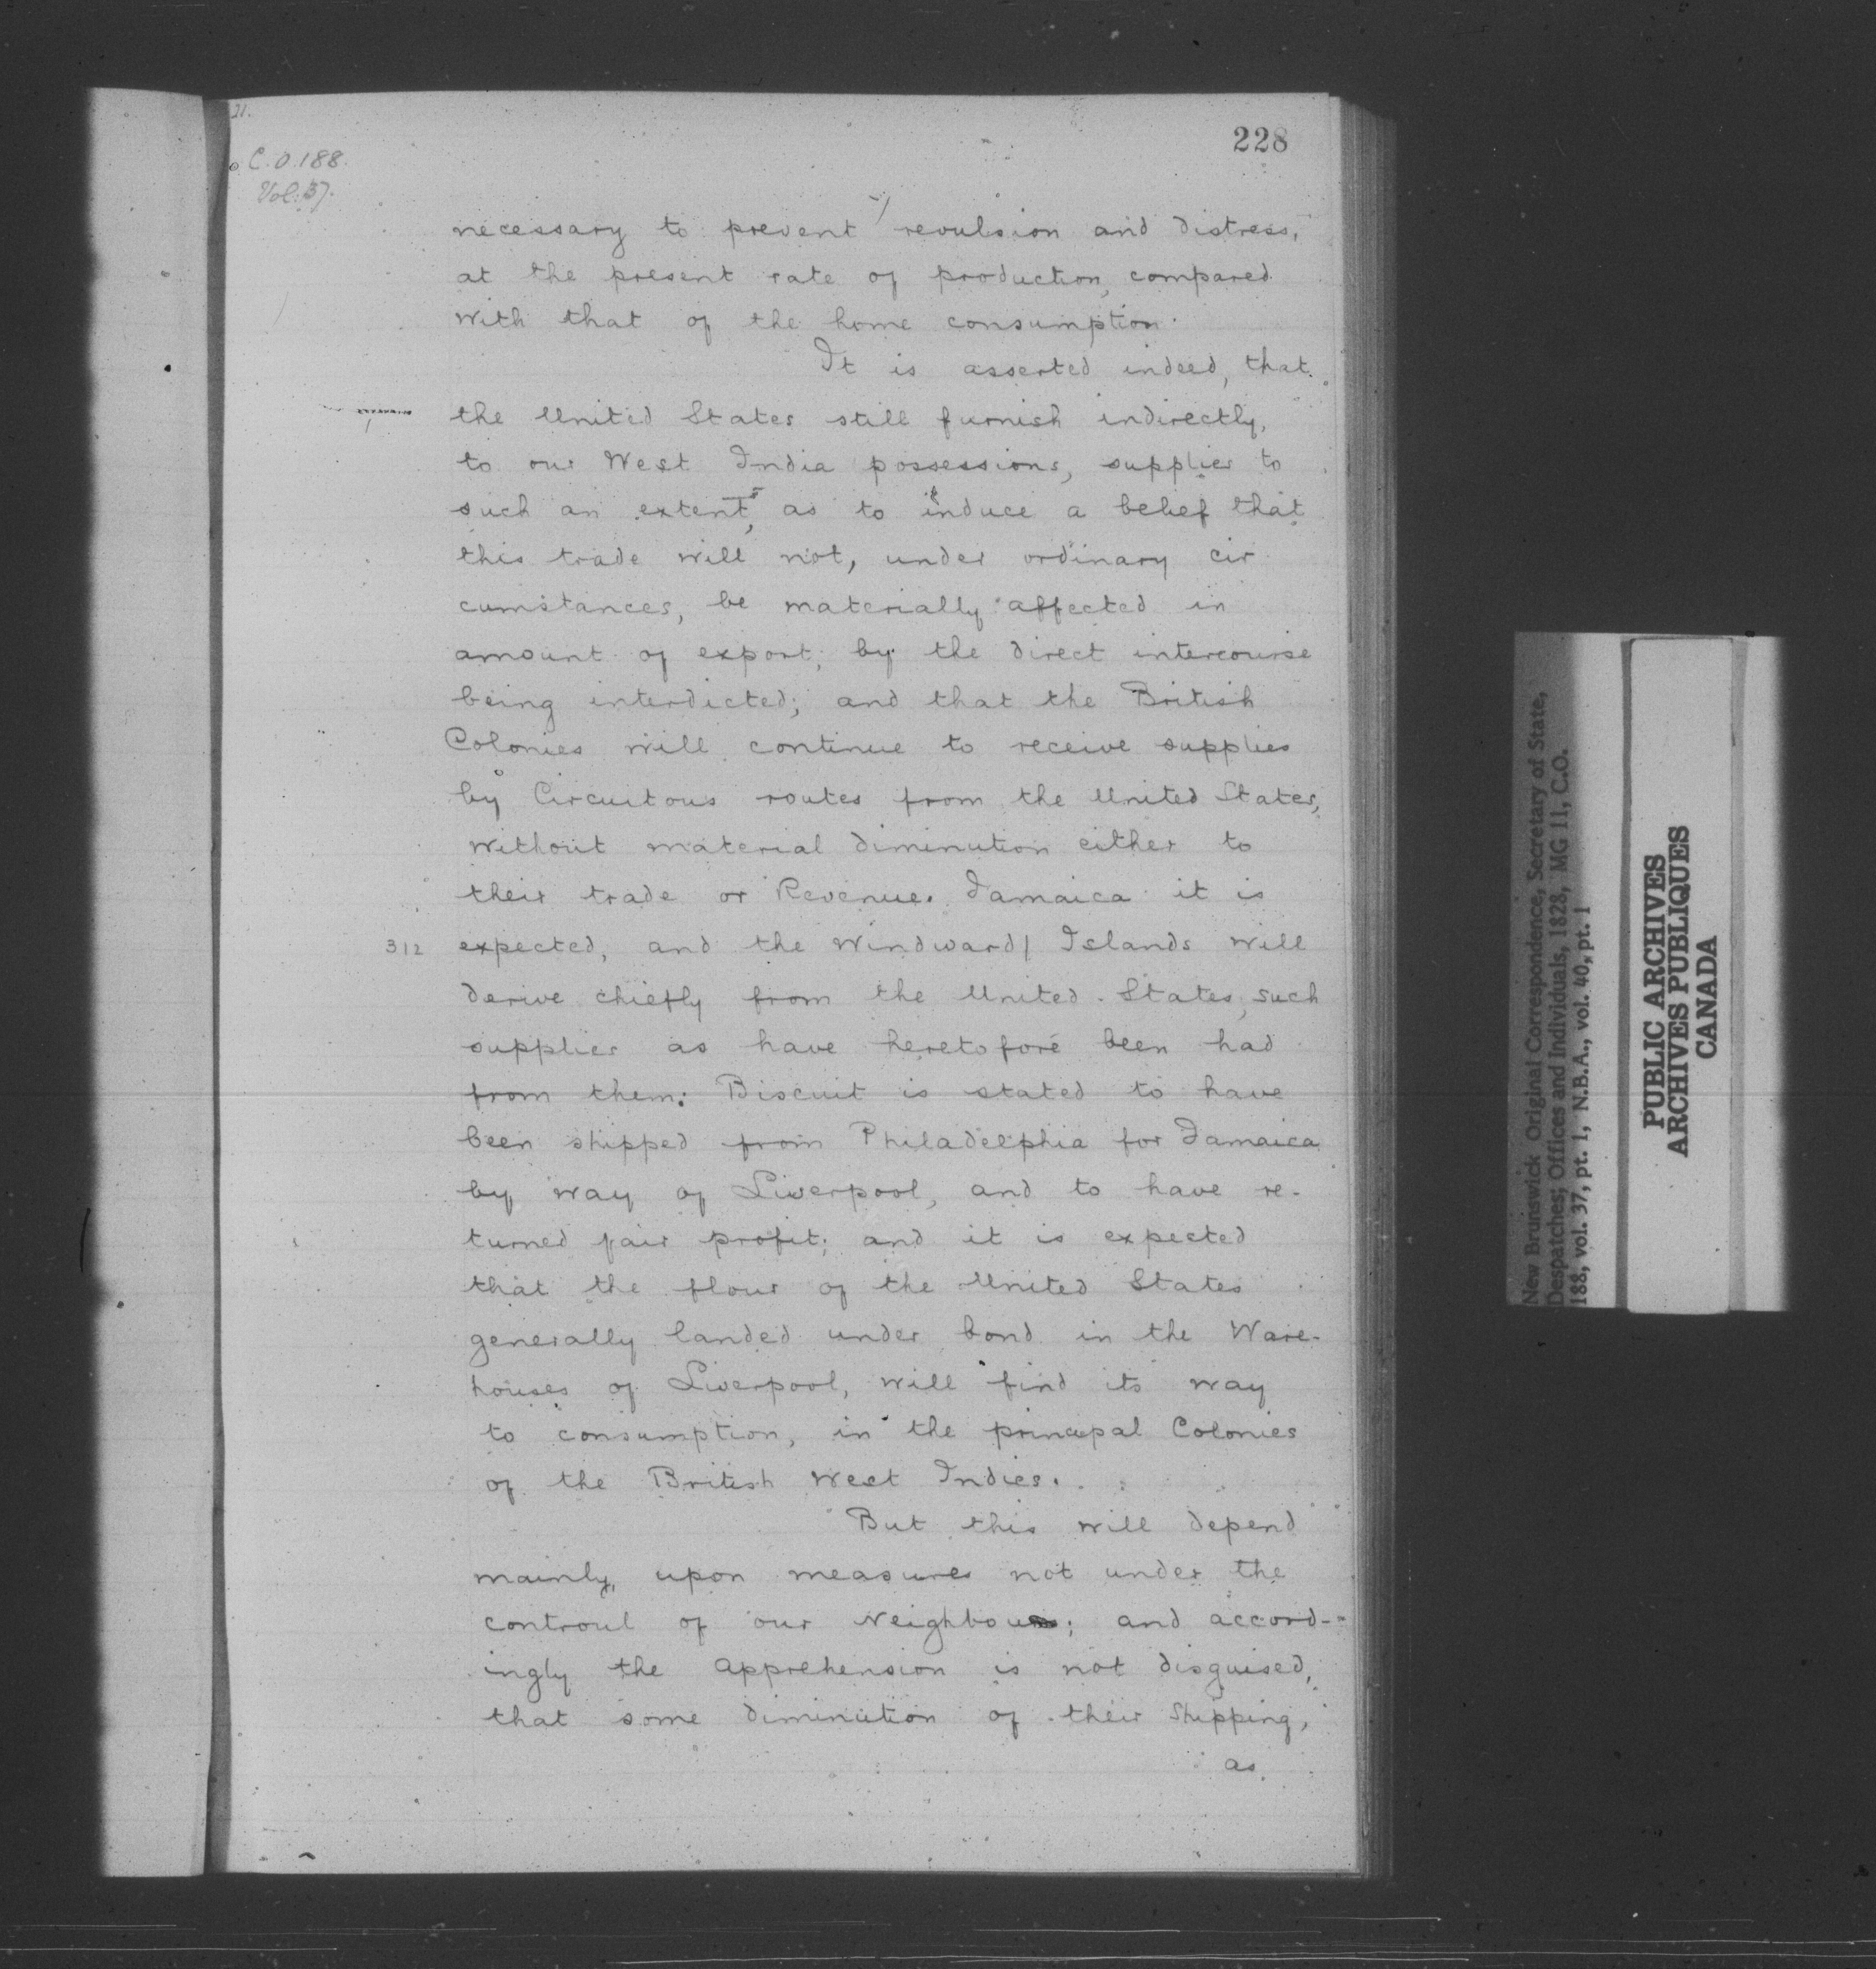 21.
228
C.O.188.
Vol: 37.
necessary to prevent revulsion and distress,
at the present rate of production, compared
with that of the home consumption.
It is asserted indeed, that
the United States still furnish indirectly,
to our West India possessions, supplies to
such an extent, as to induce a belief that
this trade will not, under ordinary cir
cumstances, be materially affected in
amount of export, by the direct intercourse
being interdicted; and that the British
Colonies will continue to receive supplies
by Circuitous routes from the United States,
without material diminution either to
their trade or Revenue. Jamaica it is
312 expected, and the Windward/ Islands will
derive chiefly from the United States, such
supplies as have heretofore been had
from them: Biscuit is stated to have
been shipped from Philadelphia for Jamaica
by way of Liverpool, and to have re-
turned fair profit; and it is expected
that the flour of the United States
generally landed under bond in the Ware-
houses of Liverpool, will find its way
to consumption, in the principal Colonies
of the British West Indies.
But this will depend
mainly, upon measures not under the
controul of our Neighbours; and accord-
ingly the apprehension is not disguised,
that some diminution of their Shipping,
as
New Brunswick Original Correspondence, Secretary of State,
Despatches; Offices and Individuals, 1828, MG 11, C.O.
188, vol. 37, pt. 1, N.B.A., vol. 40, pt. 1
PUBLIC ARCHIVES
ARCHIVES PUBLIQUES
CANADA